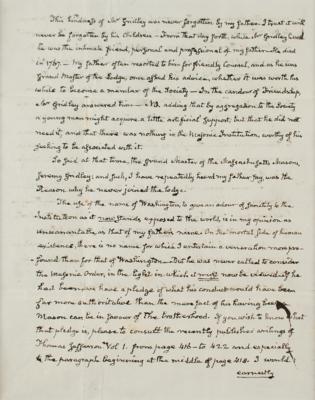 This kindness of Mr Gridley was never forgotten by my father. I trust it will
never be forgotten by his children — From that day forth, while Mr Gridley lived
he was the intimate friend, personal and professional of my father. He died
in 1767. — My father often resorted to him for friendly Counsel, and as he was
Grand Master of the Lodge, once asked his advice, whether it was worth his
while to become a member of the Society — In the candour of Friendship,
Mr Gridley answered him — No. adding that by aggregation to the Society
a young man might acquire a little artificial support, but that he did not
need it, and that there was nothing in the Masonic Institution, worthy of his
seeking to be associated with it.
So said at that time, the Grand Master of the Massachusetts Masons,
Jeremy Gridley; and such, I have repeatedly heard my father say, was the
Reason why he never joined the lodge.
The use of the name of Washington, to give an odour of sanctity to the
Institution as it now stands exposed to the world, is in my opinion as
unwarrantable as that of my father's name. On the mortal side of human
existence, there is no name for which I entertain a veneration more pro-
found than for that of Washington — But he was never called to consider
the Masonic Order, in the light in which it must now be viewed. If he
had been, we have a pledge of what his conduct would have been
far more authoritative than the mere fact of his having been a
Mason can be in favour of The brotherhood. If you wish to know what
that pledge is, please to consult the recently published writings of
Thomas Jefferson Vol 1. from page 416 to — 422 and especially
the paragraph beginning at the middle of page 418. I would
earnestly